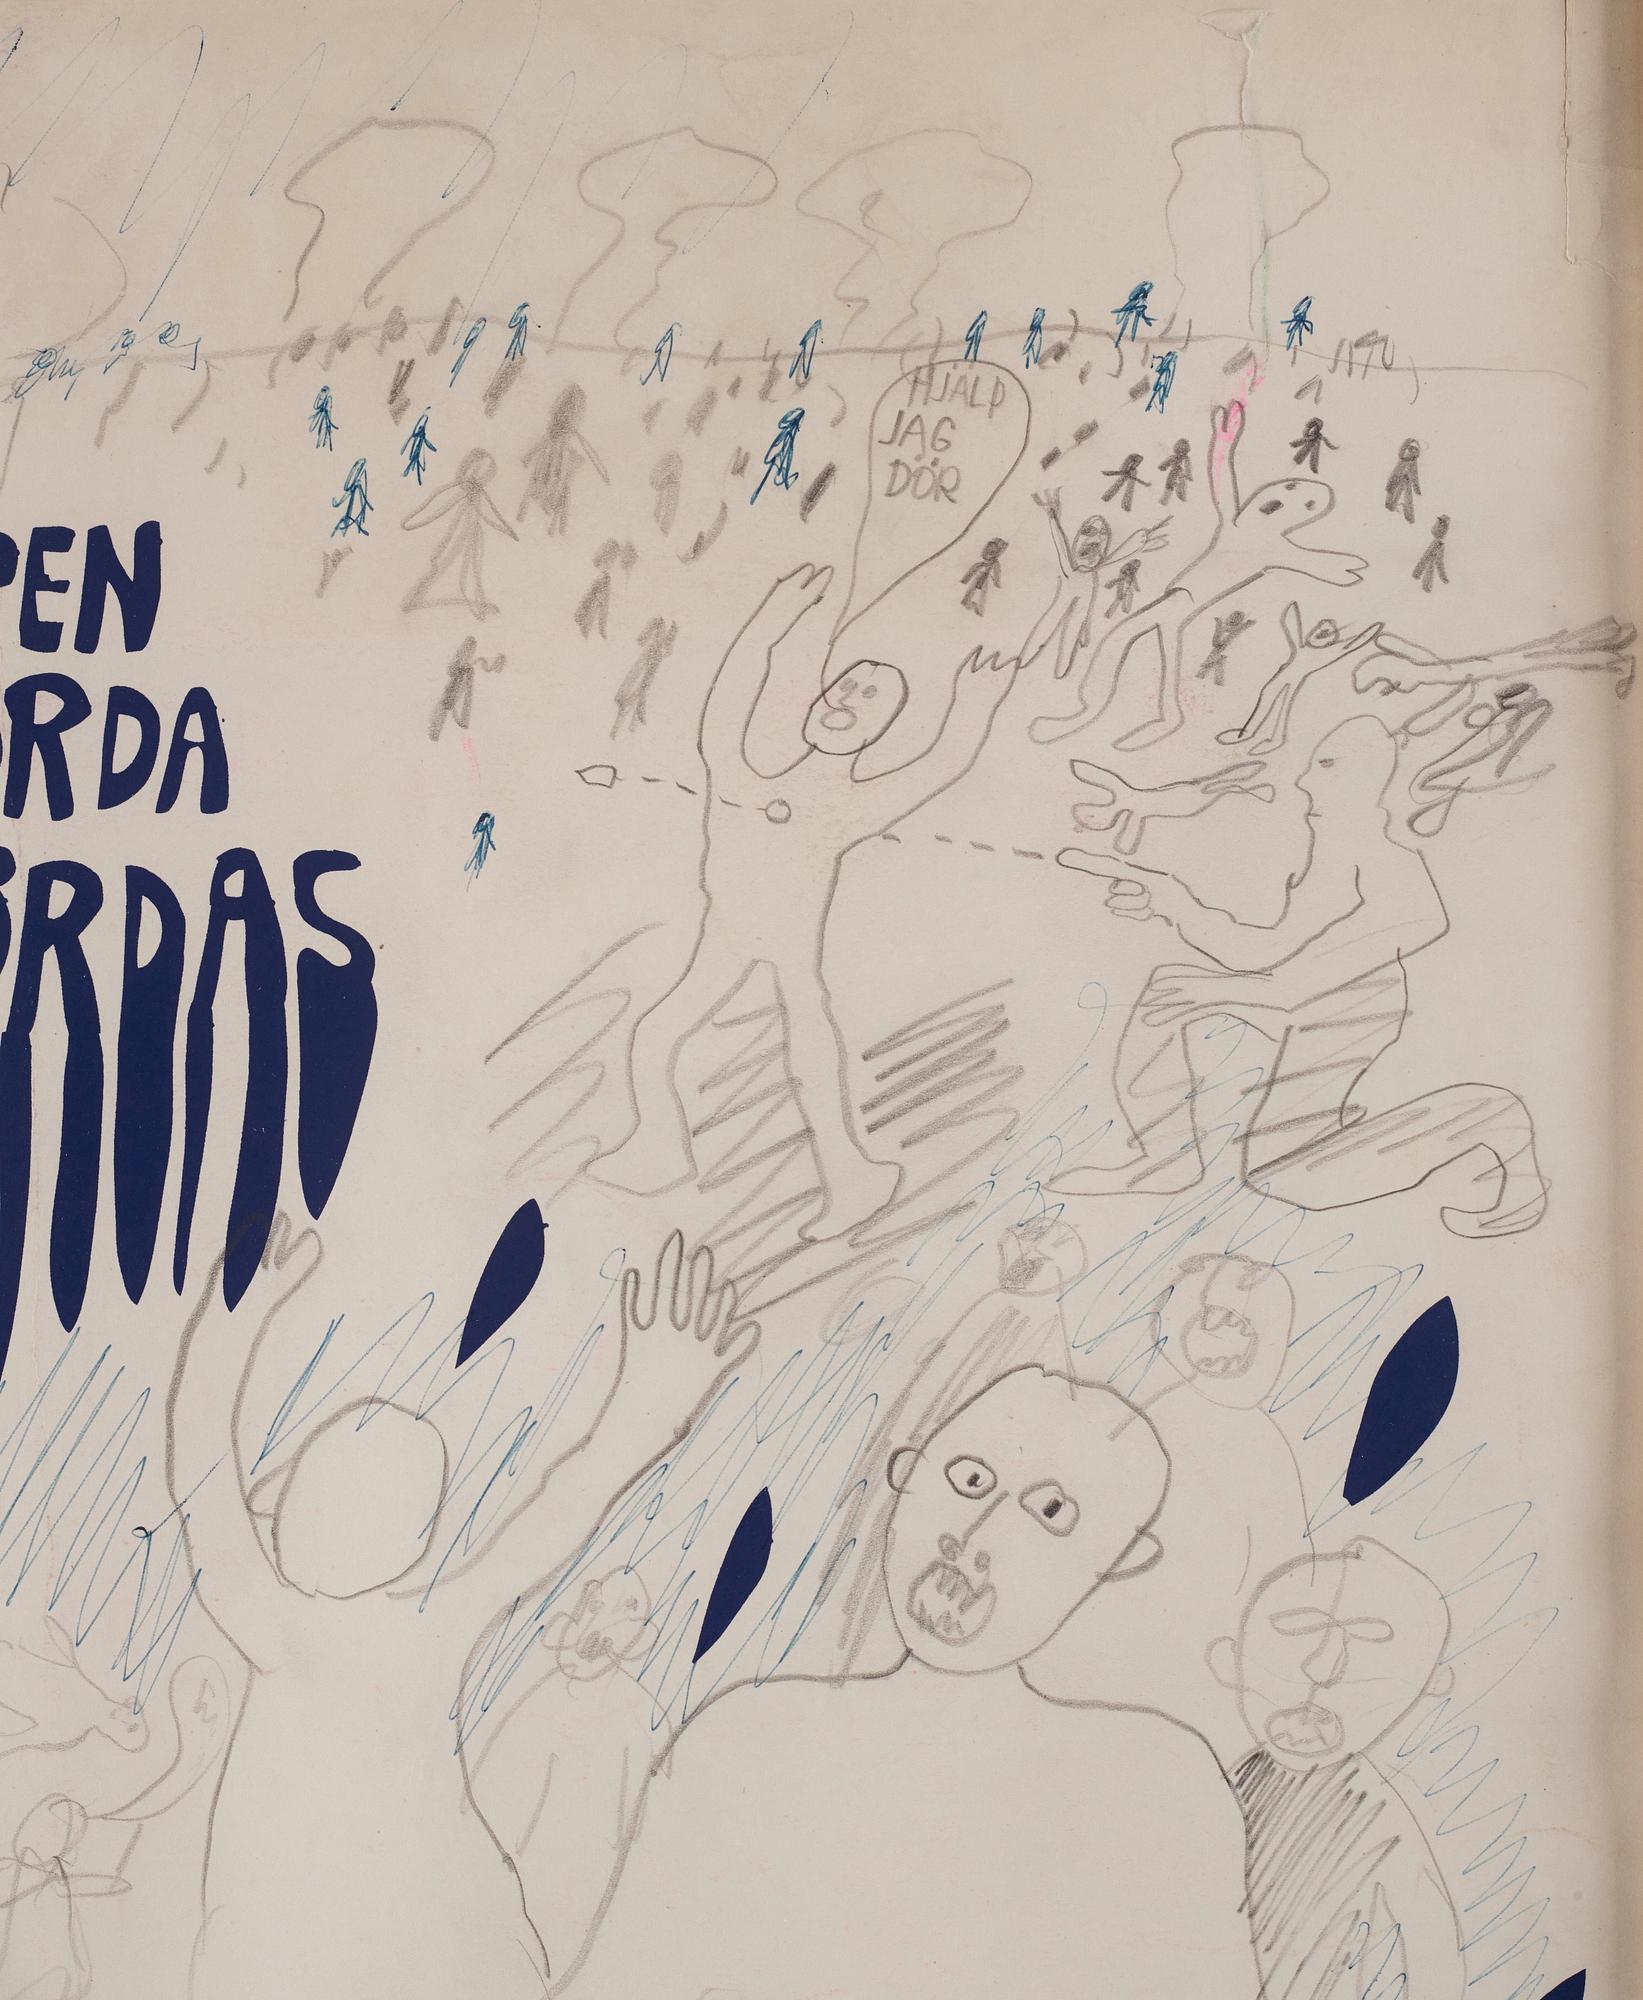 HJÄLP
JAG
DÖR
PEN
RDA
RDAS